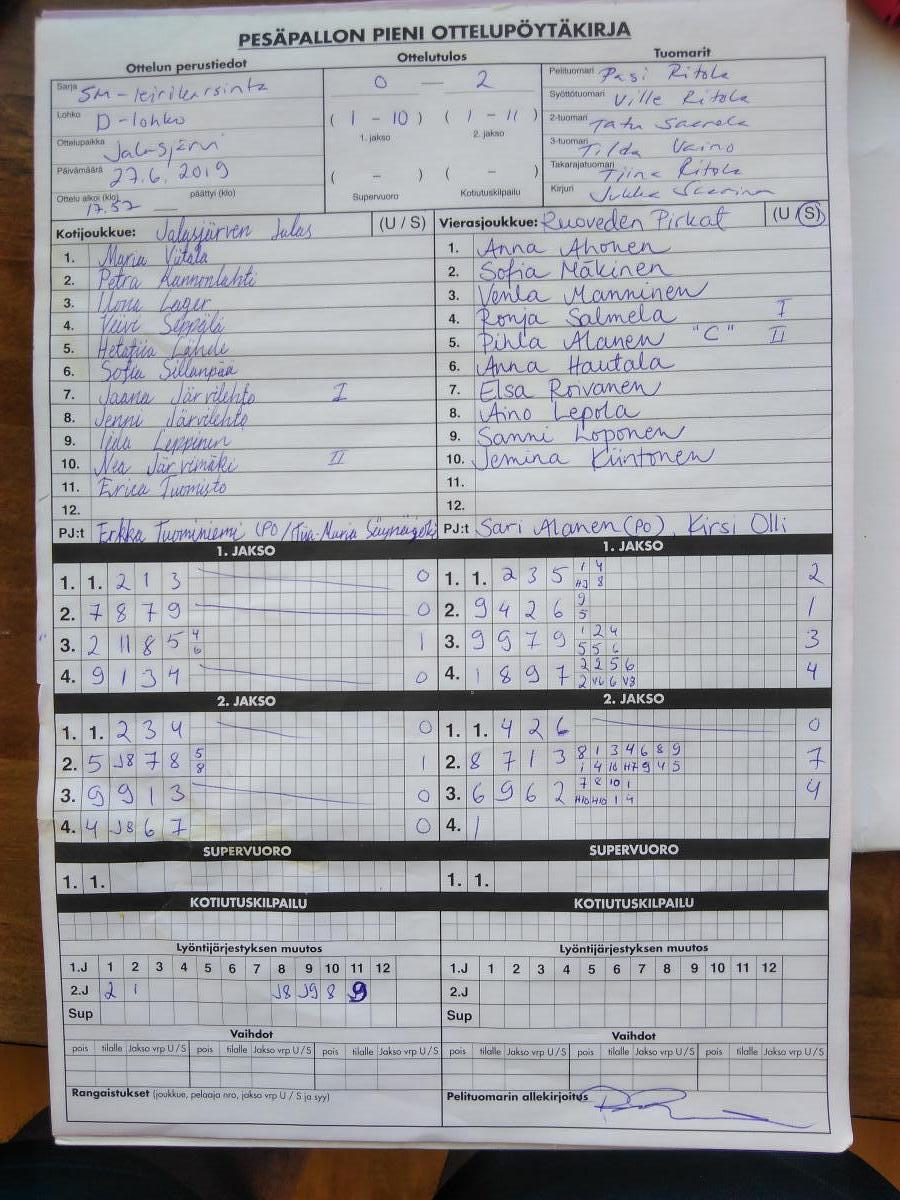 PESÄPALLON PIENI OTTELUPÖYTÄKIRJA
Ottelun perustiedot
Ottelutulos
Tuomarit
Sarja SM-leirikarsinta
0 — 2
Pelituomari Pasi Ritola
Syöttötuomari Ville Ritola
Lohko D-lohko
( 1 - 10 ) ( 1 - 11 )
2-tuomari Tatu Saarela
1. jakso 2. jakso
Ottelupaikka Jalasjärvi
3-tuomari Tilda Vainio
Päivämäärä 27.6.2019
( - ) ( - )
Takarajatuomari Tiina Ritola
Ottelu alkoi (klo) 17.52 päättyi (klo)
Supervuoro Kotiutuskilpailu
Kirjuri Jukka
Kotijoukkue: Jalasjärven Jalas (U / S)
Vierasjoukkue: Ruoveden Pirkat (U / S)
1. Maria Viitala
2. Petra Kannonlahti
3. Ilona Lager
4. Veivi Seppälä
5. Hetatiia Lähde
6. Sofia Sillanpää
7. Jaana Järvilehto I
8. Jenni Järvilehto
9. Iida Leppinen
10. Nea Järvimäki II
11. Erica Tuomisto
12.
PJ:t Erkka Tuominiemi (PO) / Tiia-Maria
1. Anna Ahonen
2. Sofia Mäkinen
3. Venla Manninen
4. Ronja Salmela I
5. Pihla Alanen "C" II
6. Anna Hautala
7. Elsa Roivanen
8. Aino Lepola
9. Sanni Loponen
10. Jemina Kiintonen
11.
12.
PJ:t Sari Alanen (PO), Kirsi Olli
1. JAKSO
1. 1. 2 1 3 0
2. 7 8 7 9 0
3. 2 11 8 5 4 1
6
4. 9 1 3 4 0
2. JAKSO
1. 1. 2 3 4 0
2. 5 J8 7 8 5 1
8
3. 9 9 1 3 0
4. 4 J8 6 7 0
SUPERVUORO
1. 1.
KOTIUTUSKILPAILU
1. JAKSO
1. 1. 2 3 5 1 4 2
HJ 8
2. 9 4 2 6 9 1
5
3. 9 9 7 9 1 2 4 3
5 5 6
4. 1 8 9 7 2 2 5 6 4
2 V6 6 V8
2. JAKSO
1. 1. 4 2 6 0
2. 8 7 1 3 8 1 3 4 6 8 9 7
1 4 16 H7 9 4 5
3. 6 9 6 2 7 8 10 1 4
H10 H10 1 4
4. 1
SUPERVUORO
1. 1.
KOTIUTUSKILPAILU
Lyöntijärjestyksen muutos
1.J 1 2 3 4 5 6 7 8 9 10 11 12
2.J 2 1 J8 J9 8 9
Sup
Vaihdot
pois tilalle Jakso vrp U / S pois tilalle Jakso vrp U / S pois tilalle Jakso vrp U / S
Rangaistukset (joukkue, pelaaja nro, jakso vrp U / S ja syy)
Lyöntijärjestyksen muutos
1.J 1 2 3 4 5 6 7 8 9 10 11 12
2.J
Sup
Vaihdot
pois tilalle Jakso vrp U / S pois tilalle Jakso vrp U / S pois tilalle Jakso vrp U / S
Pelituomarin allekirjoitus